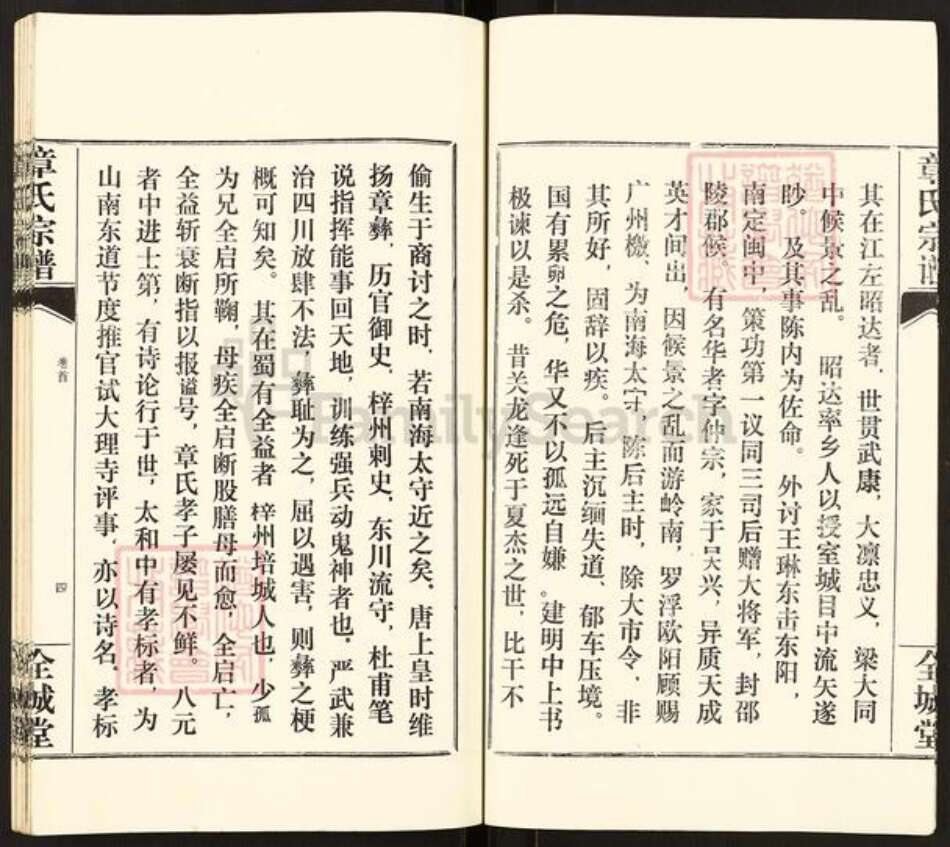 章氏宗谱
全城堂
其在江左昭达者．世贯武康，大凛忠义，梁大同
中候景之乱。昭达率乡人以授室城目中流矢遂
眇。及其事陈内为佐命。外讨王琳东击东阳，
南定闽中，策功第一议同三司后赠大将军，封邵
陵郡候、有名华者字仲宗，家于吴兴，异质天成
英才间出，因候景之乱而游岭南，罗浮欧阳顾赐
广州檄、为南海太守 陈后主时，除大市令．非
其所好，固辞以疾。后主沉缅失道、郁车压境。
国有累卵之危，华又不以孤远自嫌。建明中上书
极谏以是杀。昔关龙逢死于夏杰之世，比干不
偷生于商讨之时．若南海太守近之矣、唐上皇时维
扬章彝，历官御史．梓州刺史．东川流守，杜甫笔
说指挥能事回天地，训练强兵动鬼神者也．严武兼
治四川放肆不法，彝耻为之，屈以遇害，则彝之梗
概可知矣。其在蜀有全益者 梓州培城人也，少孤
为兄全启所鞠，母疾全启断股膳母而愈，全启亡，
全益斩衰断指以报谥号，章氏孝子屡见不鲜。八元
者中进士第，有诗论行于世，太和中有孝标者，为
山南东道节度推官试大理寺评事．亦以诗名．孝标
章氏宗谱
卷首
四
全城堂
FamilySearch